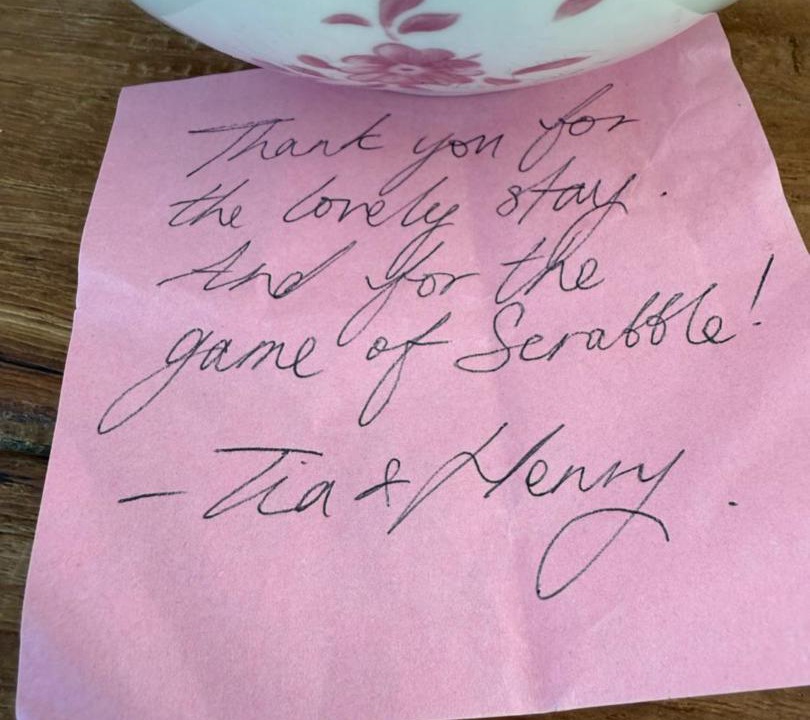 Thank you for
the lovely stay.
And for the
game of Scrabble!
- Tia & Henry.